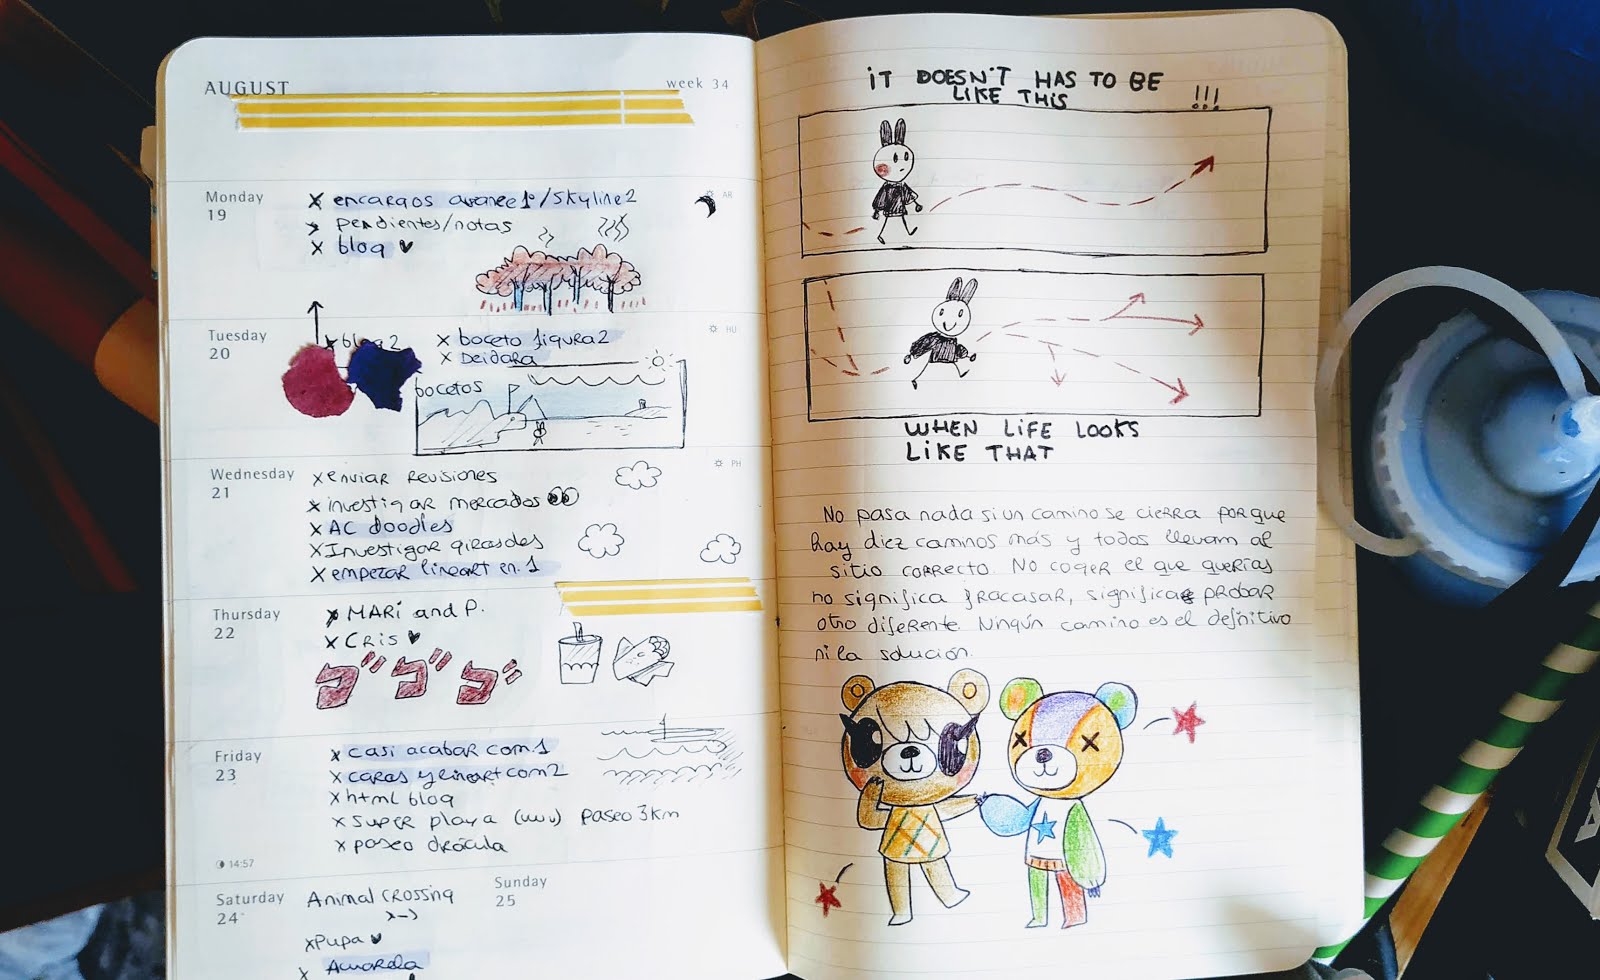 AUGUST
week 34
Monday
19
x encargos avance 1º/Skyline2
AR
x pendientes/notas
x blog ♥
Tuesday
20
x blog 2
x boceto figura2
HU
x Deidara
bocetos
Wednesday
21
x enviar revisiones
PH
x investigar mercados
x AC doodles
x Investigar girasoles
x empezar lineart en. 1
Thursday
22
x MARÍ and P.
x CRIS ♥
ゴゴゴ
Friday
23
x casi acabar com 1
x caras y lineart com2
x html blog
x super playa (uuu) paseo 3km
x paseo drácula
14:57
Saturday
24
Animal Crossing
Sunday
25
xPupa ♥
x Amorela
IT DOESN'T HAS TO BE
LIKE THIS !!!
WHEN LIFE LOOKS
LIKE THAT
No pasa nada si un camino se cierra porque
hay diez caminos más y todos llevan al
sitio correcto. No coger el que querías
no significa fracasar, significa probar
otro diferente. Ningún camino es el definitivo
ni la solución.